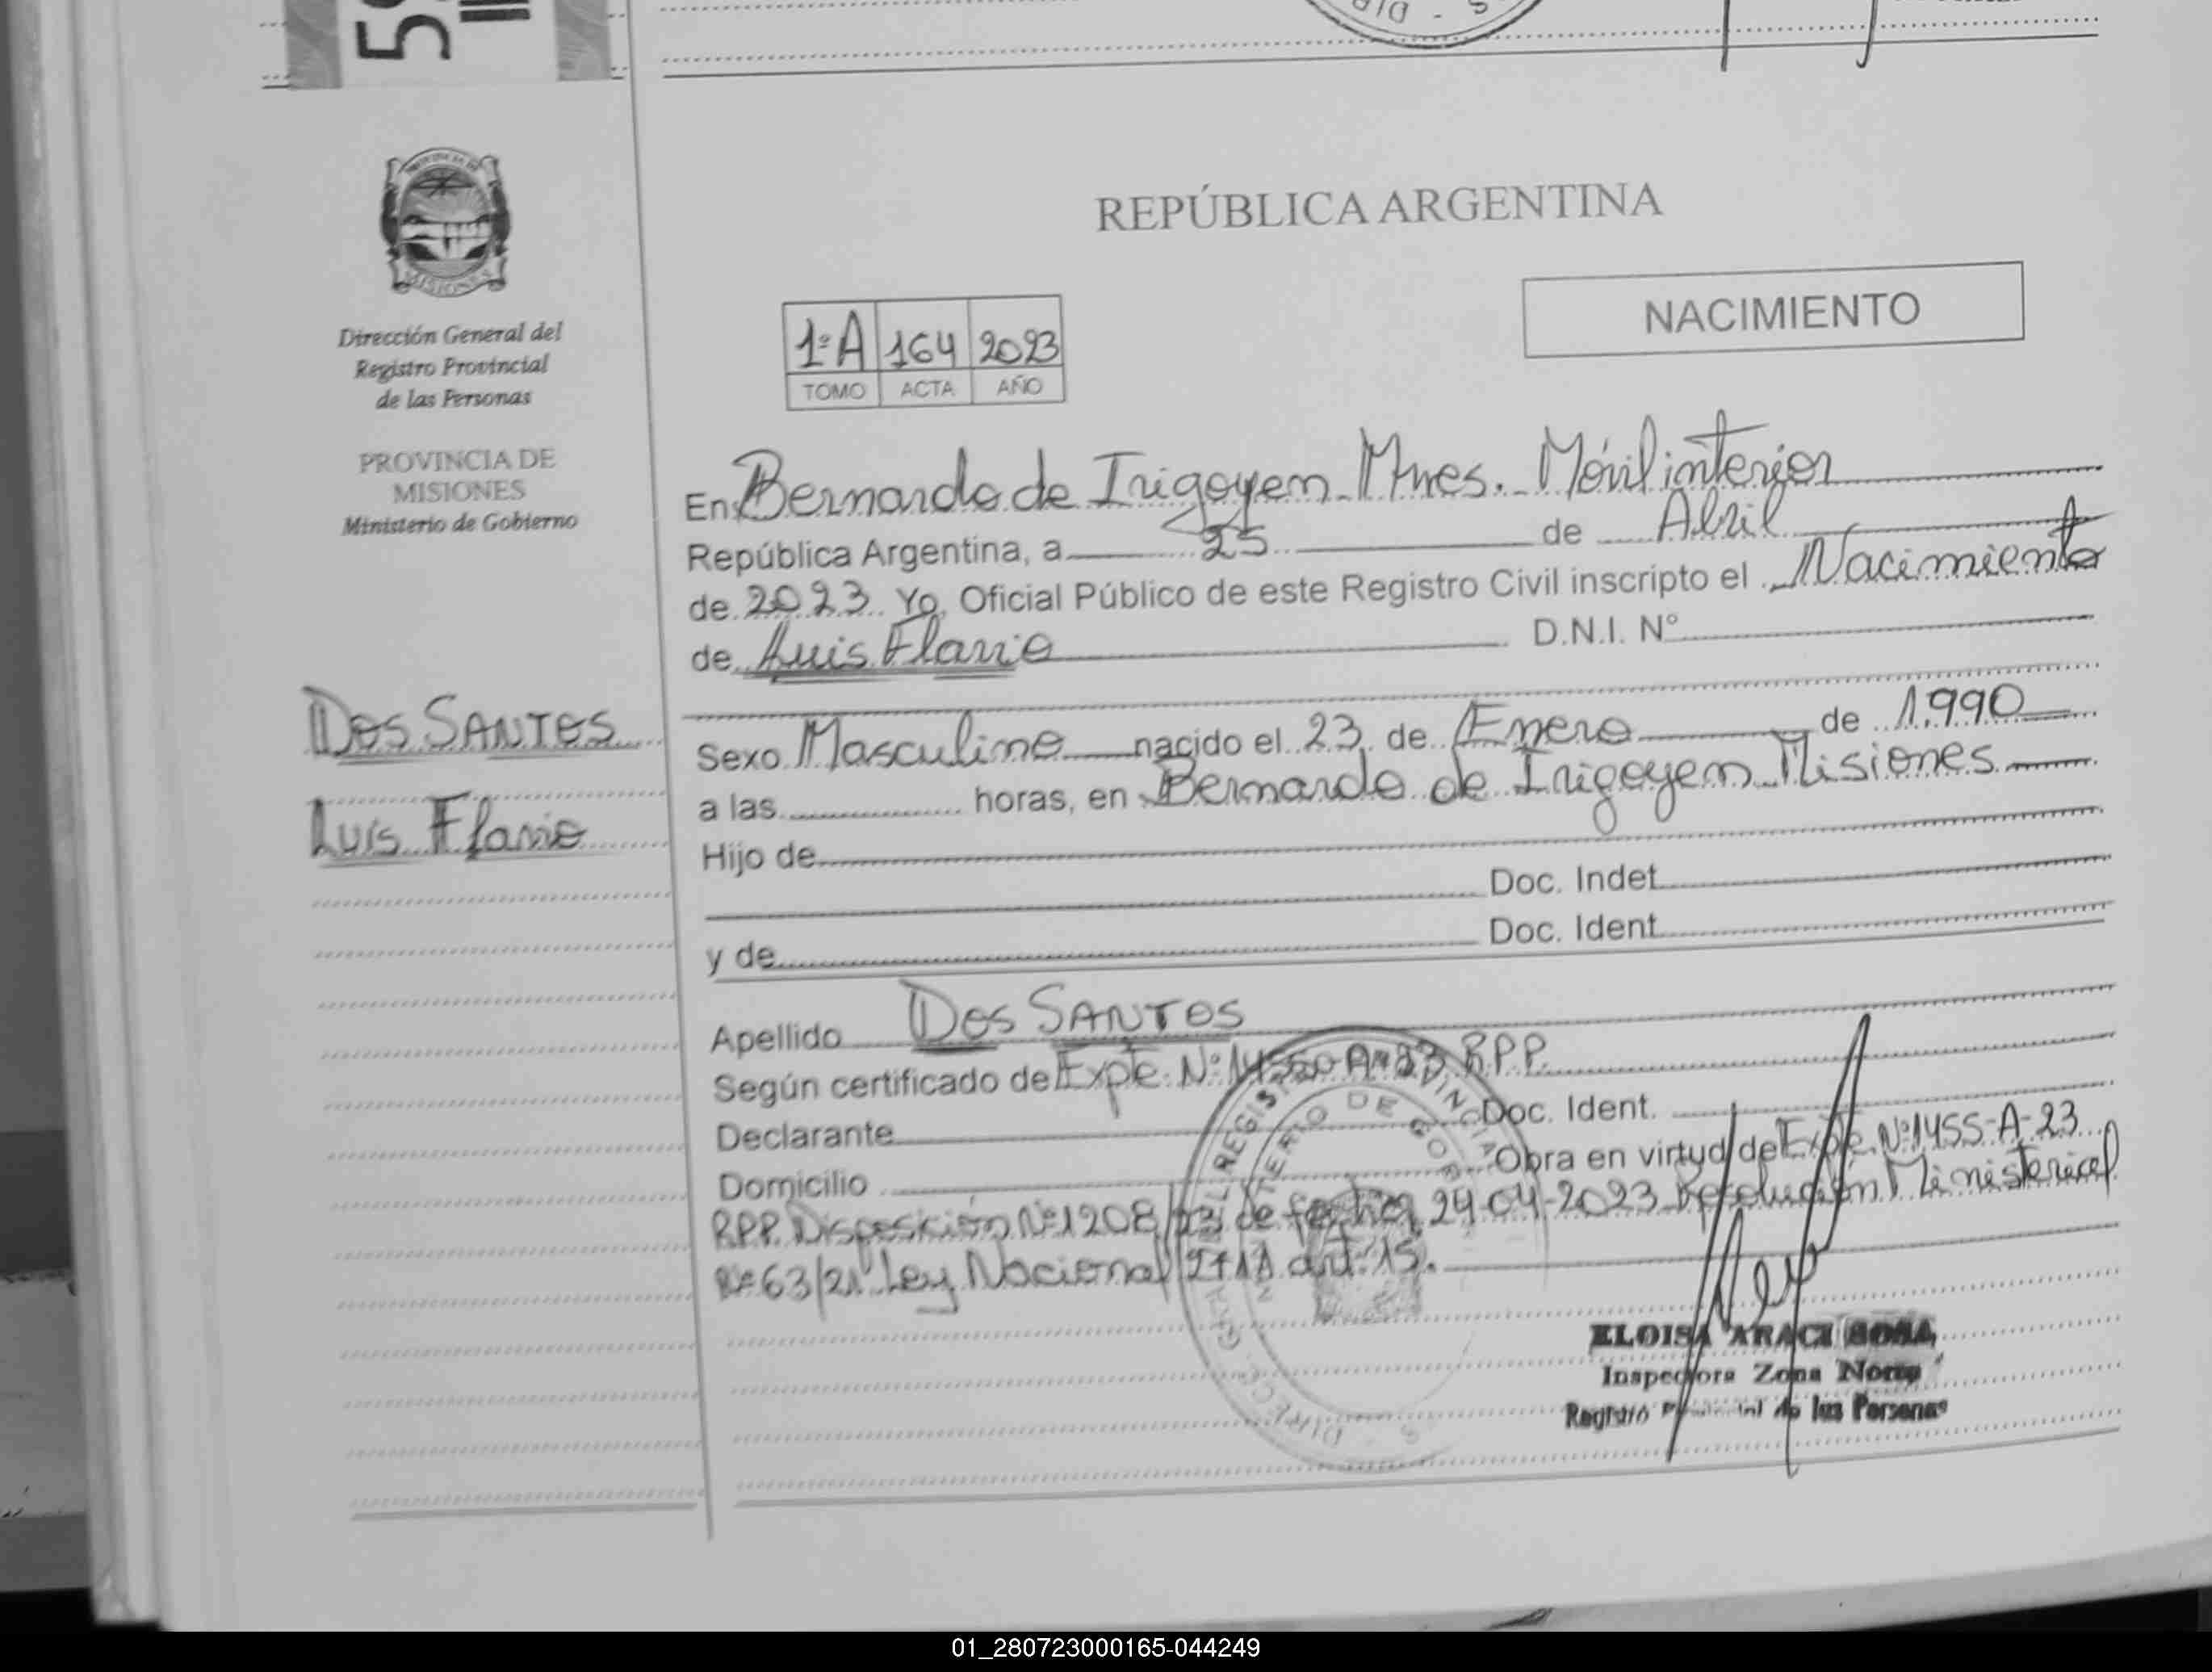 REPÚBLICA ARGENTINA
NACIMIENTO
1ºA 164 2023
TOMO ACTA AÑO
Dirección General del
Registro Provincial
de las Personas
PROVINCIA DE
MISIONES
Ministerio de Gobierno
DOS SANTOS
Luis Flavio
En Bernardo de Irigoyen Mnes. Móvil interior
República Argentina, a 25 de Abril
de 2023 Yo, Oficial Público de este Registro Civil inscripto el Nacimiento
de Luis Flavio D.N.I. Nº
Sexo Masculino nacido el 23 de Enero de 1.990
a las horas, en Bernardo de Irigoyen Misiones
Hijo de
Doc. Indet
y de Doc. Ident
Apellido DOS SANTOS
Según certificado de Expte. Nº 1455 A-23 R.P.P.
Declarante Doc. Ident.
Domicilio Obra en virtud de Expte. Nº 1455-A-23
R.P.P. Disposición Nº 1208/23 de fecha 24-04-2023 Resolución Ministerial
Nº 63/21 Ley Nacional art. 15.
ELOISA ARACI SOSA
Inspectora Zona Norte
Registro Provincial de las Personas
01_280723000165-044249